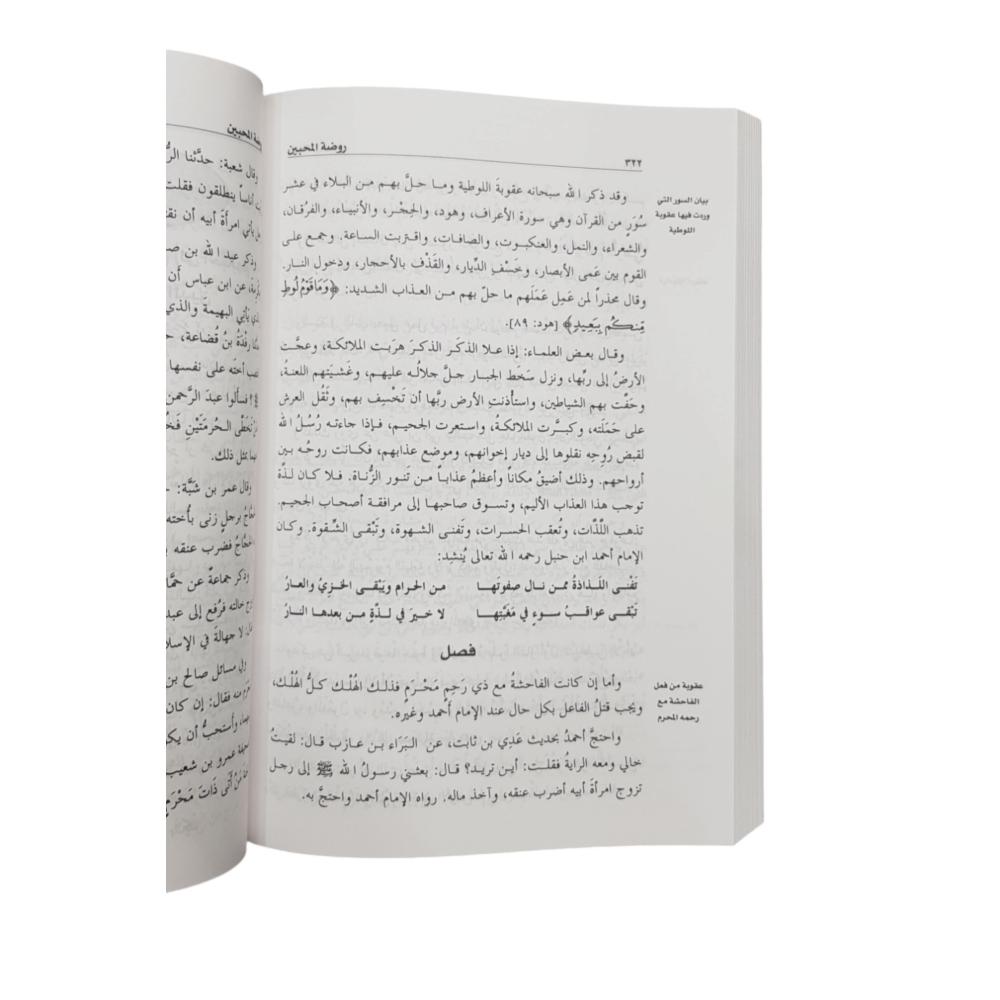 ٣٢٢
روضة المحبين
وقد ذكر الله سبحانه عقوبةَ اللوطية وما حلَّ بهم من البلاء في عشر
سُوَرٍ من القرآن وهي سورة الأعراف، وهود، والحِجْر، والأنبياء، والفرُقان،
والشعراء، والنمل، والعنكبوت، والصافات، واقتربت الساعة. وجمع على
القوم بين عَمى الأبصار، وخَسْفِ الدِّيار، والقَذْف بالأحجار، ودخول النار.
وقال محذراً لمن عَمِل عَمَلَهم ما حلّ بهم من العذاب الشديد: ﴿وَمَا قَوْمُ لُوطٍ
مِّنكُم بِبَعِيدٍ﴾ [هود: ٨٩].
وقال بعض العلماء: إذا علا الذكَر الذكرَ هرَبت الملائكة، وعجَّت
الأرضُ إلى ربِّها، ونزل سَخَط الجبار جلَّ جلالُه عليهم، وغَشيَتهم اللعنةُ،
وحَفَّت بهم الشياطين، واستأْذنتِ الأرض ربَّها أن تَخْسِف بهم، وثَقُل العرش
على حَمَلَته، وكبَّرت الملائكةُ، واستعرت الجحيم، فإذا جاءته رُسُلُ الله
لقبض رُوحِه نقلوها إلى ديار إخوانهم، وموضع عذابهم، فكانت روحُه بين
أرواحهم. وذلك أضيقُ مكاناً وأعظمُ عذاباً من تَنور الزُّناة. فلا كان لذَّة
توجب هذا العذاب الأليم، وتسوق صاحبها إلى مرافقة أصحاب الجحيم.
تذهب اللَّذَّات، وتُعقب الحسرات، وتَفنى الشهوة، وتَبْقى الشِّقوة. وكان
الإمام أحمد ابن حنبل رحمه الله تعالى يُنشِد:
تَفْنى اللَّذاذةُ ممن نال صفوتَها من الحرام ويَبْقى الخزيُ والعارُ
تَبْقى عواقبُ سوءٍ في مَغَبَّتِها لا خيرَ في لذّةٍ من بعدها النارُ
فصل
وأما إن كانت الفاحشةُ مع ذي رَحِمٍ مَحْرَمٍ فذلك الهُلْك كلُّ الهُلْك،
ويجب قتلُ الفاعل بكل حال عند الإمام أَحمد وغيره.
واحتجَّ أحمدُ بحديث عَدِي بن ثابت، عن البَرَاء بن عازب قال: لقيتُ
خالي ومعه الرايةُ فقلت: أين تريد؟ قال: بعثني رسولُ الله ﷺ إلى رجل
تزوج امرأةَ أبيه أضرب عنقه، وآخذ ماله. رواه الإمام أحمد واحتجَّ به.
بيان السور التي
وردت فيها عقوبة
اللوطية
عقوبة من فعل
الفاحشة مع
رحمه المحرم
المحبين
وقال شعبة: حدَّثنا
أناساً ينطلقون فقلت
يأتي امرأةَ أبيه أن
وذكر عبد الله بن
عن ابن عباس أن
يأتي البهيمةَ والذي
رِفْدَةُ بنُ قُضاعة،
أختَه على نفسها
فسألوا عبدَ الرَّحمن
تَخَطَّى الحُرمَتَيْنِ
بمثل ذلك.
وقال عمر بن شَبَّة:
برجلٍ زنى بأُخته
فضرب عنقه
وذكر جماعةٌ عن
خالته فرُفع إلى
لا جهالةَ في
وفي مسائل صالح بن
منه فقال: إن كان
وأستحبُّ أن
عمرو بن شعيب
مَنْ أَتَى ذَاتَ مَحْرَمٍ